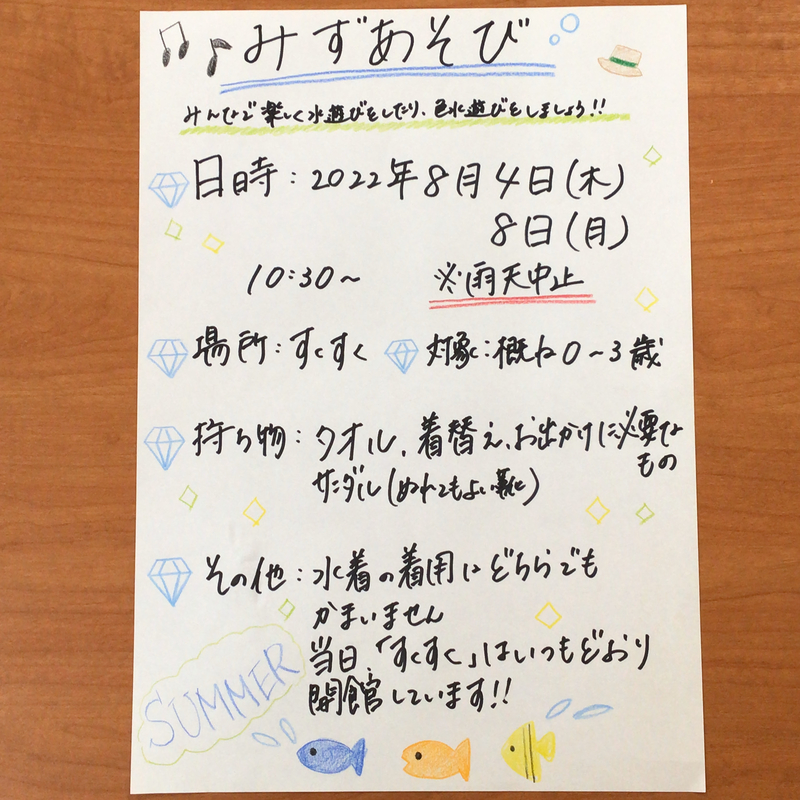 みずあそび
みんなで楽しく水遊びをしたり、色水遊びをしましょう!!
日時:2022年8月4日(木)
8日(月)
10:30〜 ※雨天中止
場所:すくすく 対象:概ね0〜3歳
持ち物:タオル、着替え、お出かけに必要な
もの
サンダル(ぬれてもよい靴)
その他:水着の着用はどちらでも
かまいません
当日、「すくすく」はいつもどおり
開館しています!!
SUMMER